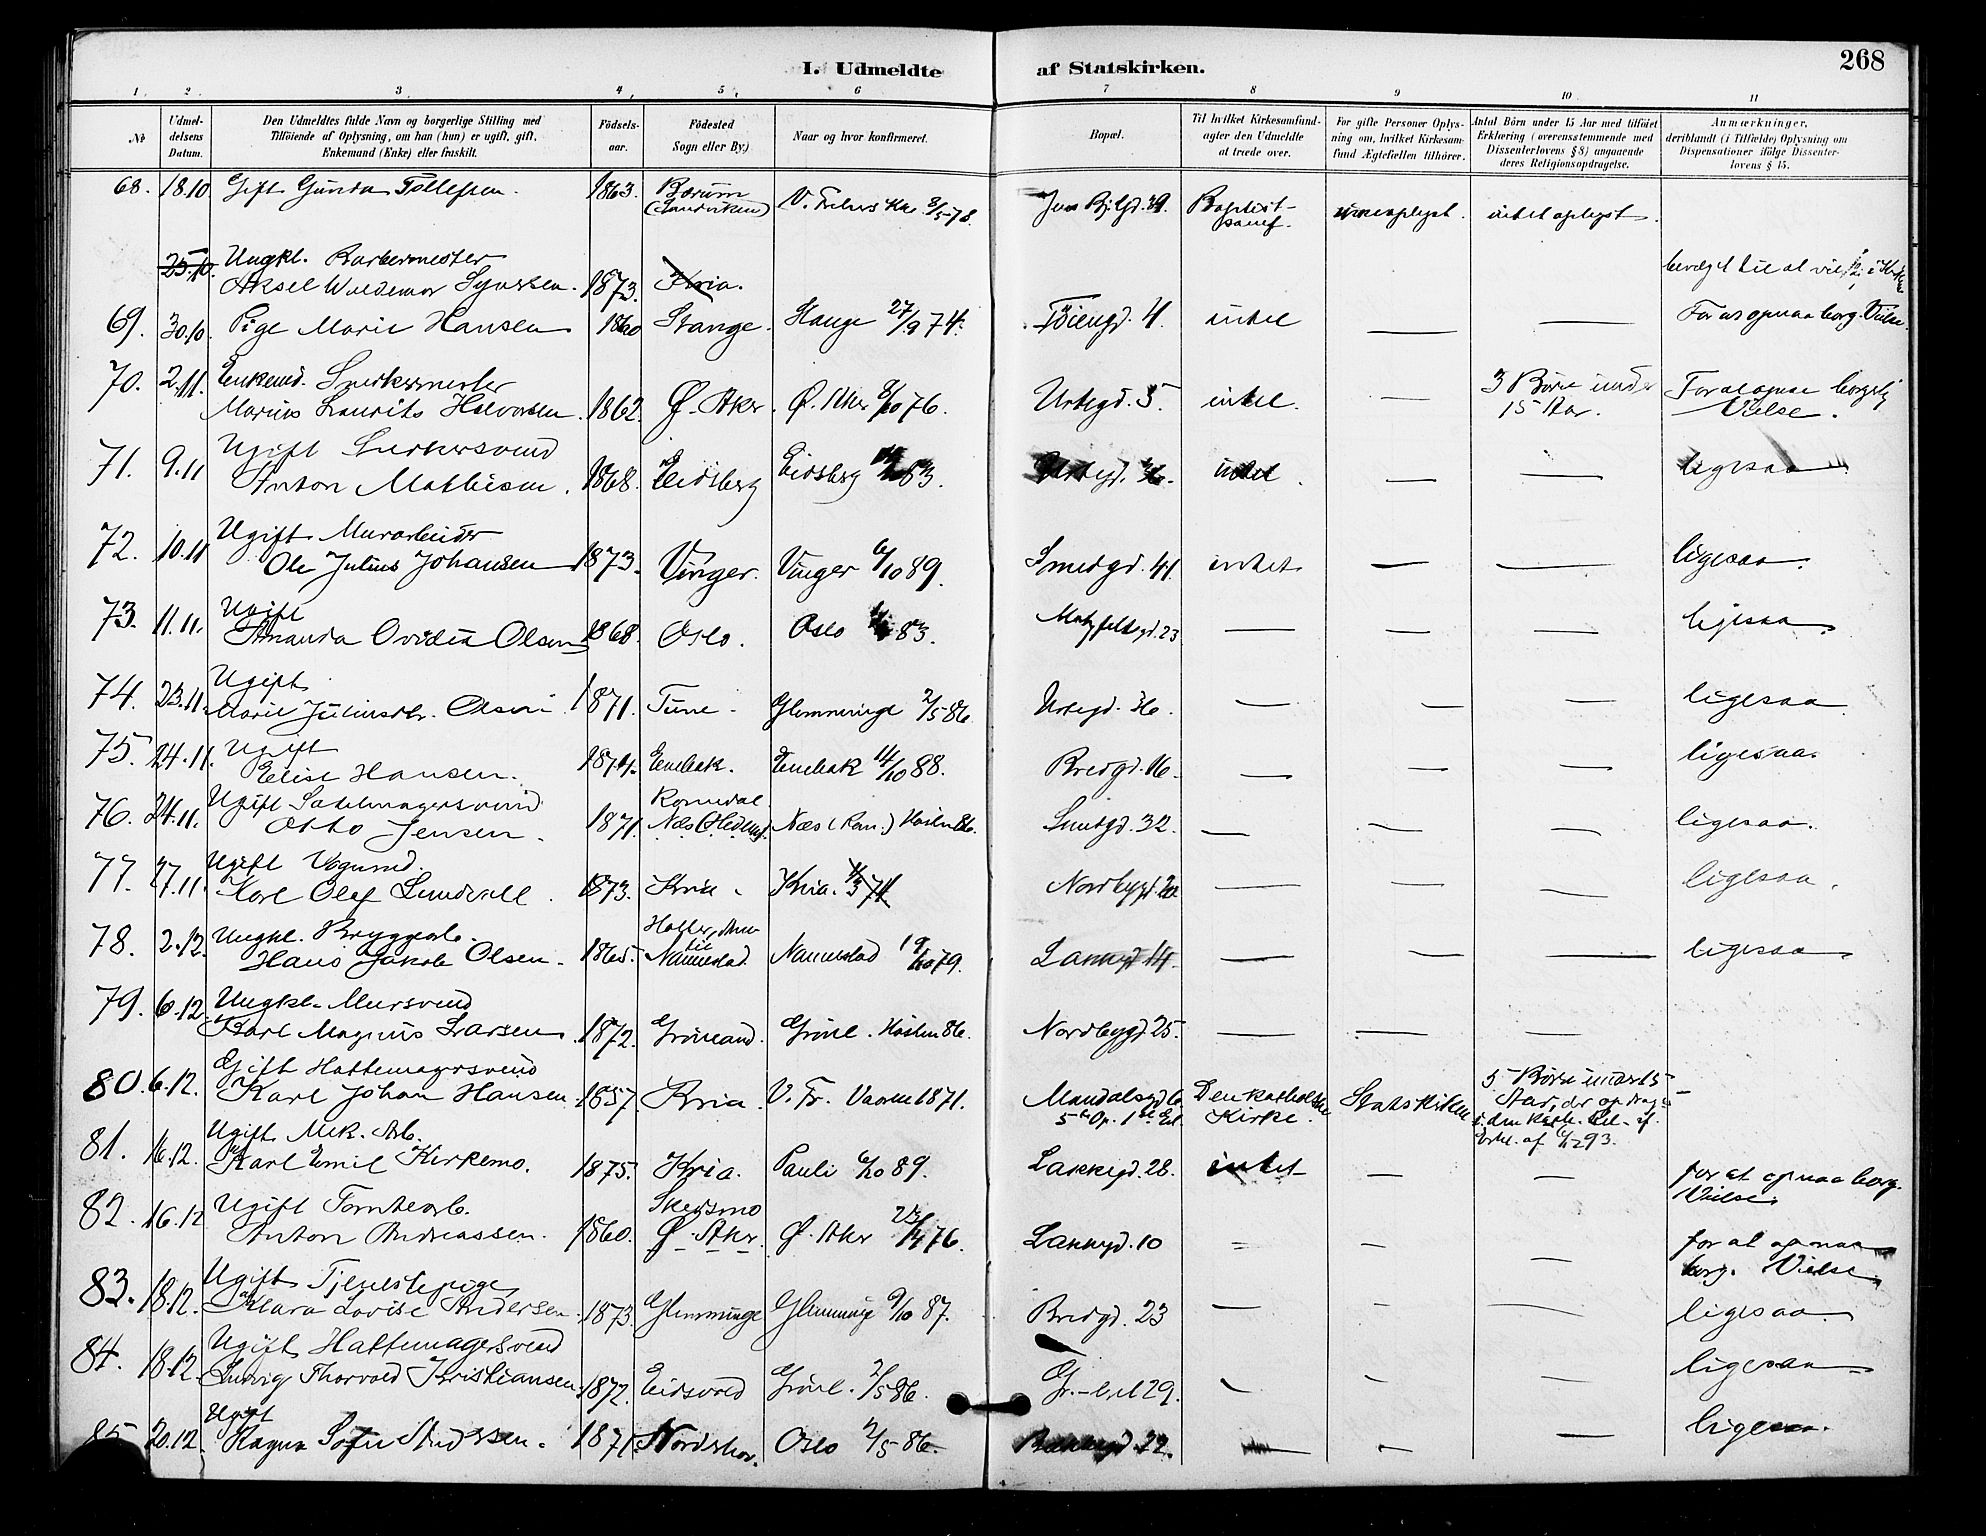 268
I. Udmeldte af Statskirken.
1. 2. 3. 4. 5. 6 7 8 9 10 11
№
Udmel-
delsens
Datum.
Den Udmeldtes fulde Navn og borgerlige Stilling med
Tilföiende af Oplysning, om han (hun) er ugift, gift,
Enkemand (Enke) eller fraskilt.
Födsels-
aar.
Födested
Sogn eller By.)
Naar og hvor konfirmeret.
Bopæl.
Til hvilket Kirkesamfund-
agter den Udmeldte
at træde over.
For gifte Personer Oplys-
ning om, hvilket Kirkesam-
fund Ægtefællen tilhörer.
Antal Börn under 15 Aar med tilföiet
Erklæring (overensstemmende med
Dissenterlovens §8) angaaende
deres Religionsopdragelse.
Anmærkninger,
deriblandt (i Tilfælde) Oplysning om
Dispensationer ifölge Dissenter-
lovens § 15.
68. 18.10 Gift Gunda Tollefsen. 1863. Bærum (Sandviken) V. Frelsers Kke 78. 49. Baptist-
samf. intet oplyst.
25.10. Ungkl. Barbermester
Aksel Waldemar 1873. Kria. bevæget til at
69. 30.10. Pige Marie Hansen 1860 Stange. Hauge 27/9 74. Töiengd. 4. intet — — For at opnaa borg. Vielse.
70. 2.11. Enkemd. Snekkermester
Marius Laurits Halvorsen. 1862. Ø. Aker. Ø. Aker 8/10 76. Urtegd. 5. intet. — 3 Børn under
15 Aar. For at opnaa borgelig
Vielse.
71. 9.11 Ugift Snekkersvend
Anton Mathisen. 1868. Eidsberg Eidsberg 83. Urtegd. 36. intet. — — ligesaa
72. 10.11 Ugift Murarbeider
Ole Julius Johansen 1873. Vinger. Vinger 6/10 89. Smedgd. 41. intet — — ligesaa.
73. 11.11. Ugift
Amanda Ovidia Olsen 1868. Oslo. Oslo 83. Motzfeldtsgd. 23 — — — ligesaa.
74. 23.11. Ugift
Marie Julinsdtr. Olsen 1871. Tune - Glemminge 2/5 86. Urtegd. 36. — — — ligesaa
75. 24.11. Ugift
Elise Hansen. 1874. Enebak. Enebak 14/10 88. Bredgd. 16. — — — ligesaa.
76. 24.11. Ugift Sadelmagersvend
Otto Jensen. 1871. Romedal
Næs (Hedem). Næs (Rom.) Hösten 86. Smedgd. 32. — — — ligesaa.
77. 27.11. Ugift Vognmd.
Karl Olaf Lundvall. 1873. Kria. Kria. 74 Nordbygd. 20. — — — ligesaa.
78. 2.12. Ungkl. Bryggearb.
Hans Jakob Olsen. 1865.
Nannestad. Nannestad 19/10 79. Lakkegd. 14. — — — ligesaa
79. 6.12. Ungkl. Mursvend
Karl Magnus Larsen 1872. Grönland. Grönl. Hösten 86. Nordbygd. 25. — — —
80. 6.12. Gift Hattemagersvend
Karl Johan Hansen. 1857. Kria. V. Fr. Vaaren 1871. Mandalsgd. 6
5te Op. 1ste Et. Den katholske
Kirke. Statskirken 5 Børn under 15
Aar, der opdrages
i den Kath. Rel. if.
Erkl. af 6/12 93.
81. 16.12. Ugift Mek. Arb.
Karl Emil Kirkemo. 1875. Kria. Pauli 6/10 89. Lakkegd. 28. intet — — for at opnaa borg.
Vielse.
82. 16.12 Ugift Tomtearb.
Anton Andreassen. 1860. Skedsmo
Ø. Aker. Ø. Aker 76. Lakkegd. 10 = — — for at opnaa
borg. Vielse.
83. 18.12. Ugift Tjenestepige
Klara Lovise Andersen. 1873. Glemminge Glemminge 9/10 87. Bredgd. 23 — — — ligesaa
84. 18.12 Ugift Hattemagersvend
Ludvig Thorvald Kristiansen. 1872. Eidsvold Grönl. 2/5 86. 29. — — — ligesaa
85 20.12. Ugift
Ragna Sofie Andersen. 1871. Nordstrand. Oslo 2/5 86. 22. — — — ligesaa.